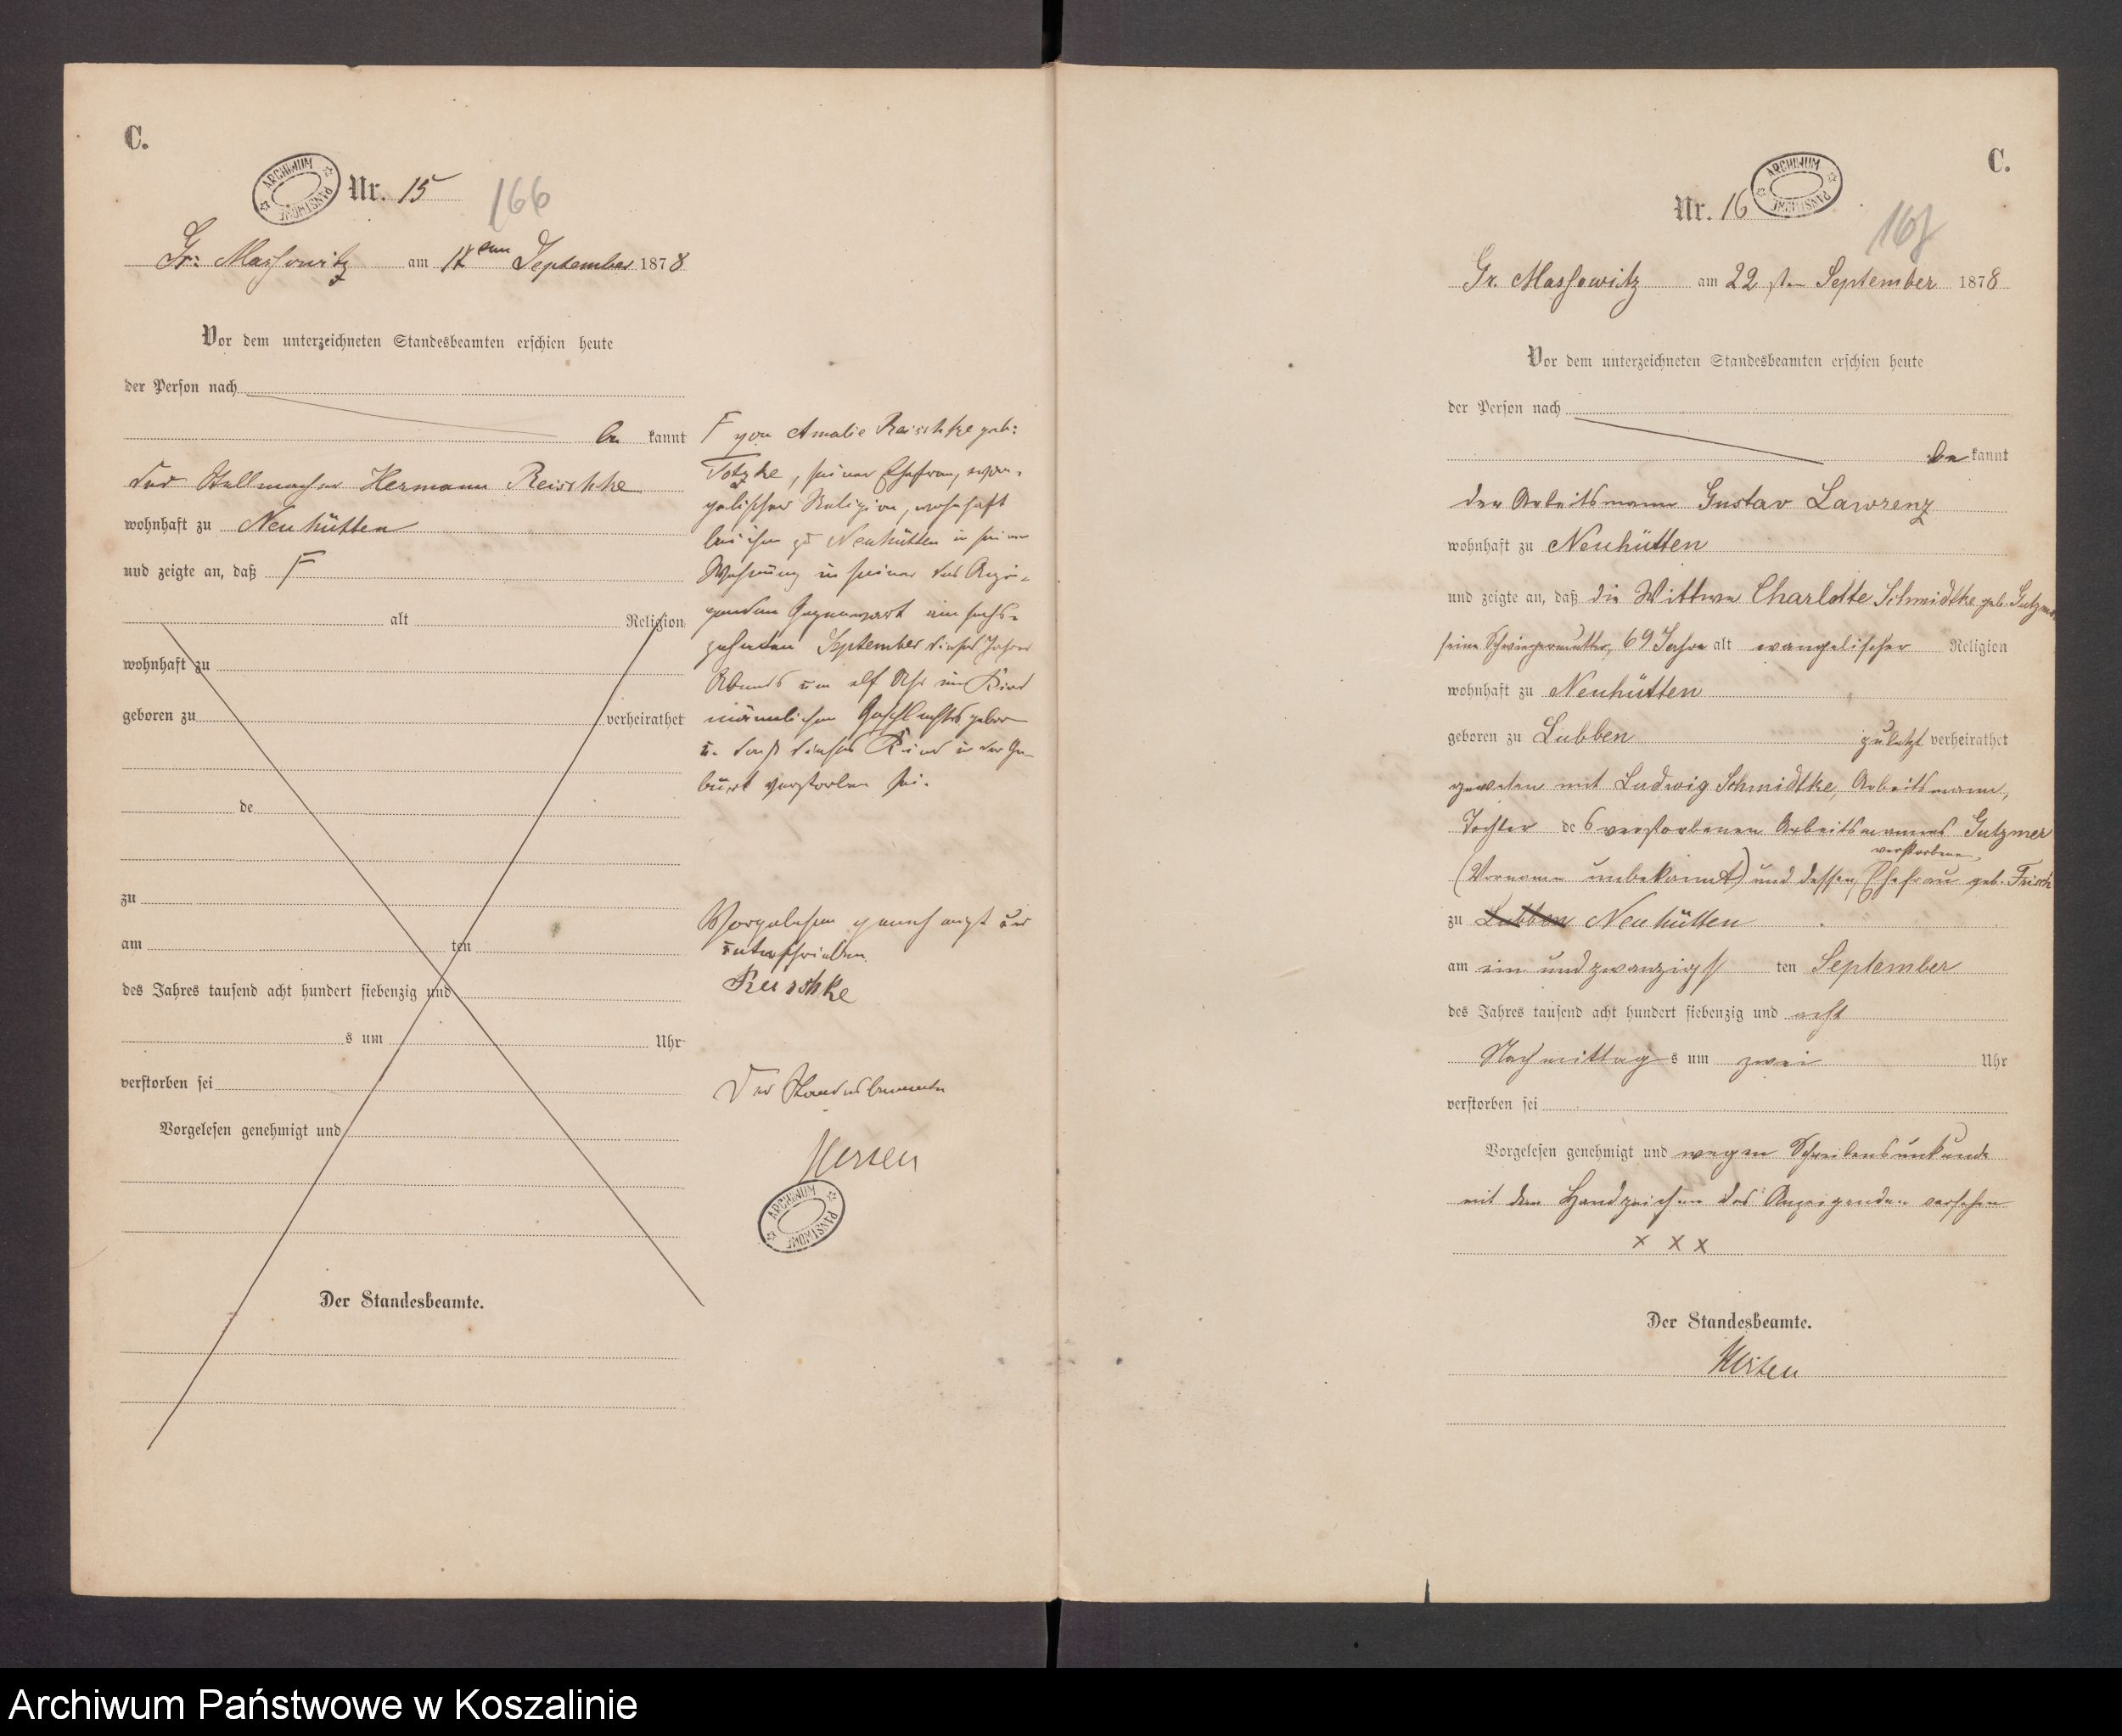 C.
ARCHIWUM PAŃSTWOWE
Nr. 15
166
Gr: Massowitz am 17ten September 1878
Vor dem unterzeichneten Standesbeamten erschien heute
der Person nach
be kannt
der Stellmacher Hermann Reischke
wohnhaft zu Neuhütten
und zeigte an, daß F
alt Religion
wohnhaft zu
geboren zu verheirathet
de
zu
am ten
des Jahres tausend acht hundert siebenzig und
s um Uhr
verstorben sei
Vorgelesen genehmigt und
Der Standesbeamte.
F von Amalie Reischke geb:
Totzke, seiner Ehefrau, evan-
gelischer Religion, wohnhaft
bei ihm zu Neuhütten in seiner
Wohnung in seiner des Anzei-
genden Gegenwart am sechs-
zehnten September dieses Jahres
Abends um elf Uhr ein Kind
männlichen Geschlechts geboren
u. daß dieses Kind in der Ge-
burt verstorben sei.
Vorgelesen genehmigt und
unterschrieben
Reischke
Der Standesbeamte
ARCHIWUM PAŃSTWOWE
C.
Nr. 16
ARCHIWUM PAŃSTWOWE
Gr. Massowitz am 22 sten September 1878
Vor dem unterzeichneten Standesbeamten erschien heute
der Person nach
be kannt
der Arbeitsmann Gustav Lawrenz
wohnhaft zu Neuhütten
und zeigte an, daß die Wittwe Charlotte Schmidtke geb. Gutzmer
seine Schwiegermutter, 69 Jahre alt evangelischer Religion
wohnhaft zu Neuhütten
geboren zu Lubben zuletzt verheirathet
gewesen mit Ludwig Schmidtke, Arbeitsmann,
Tochter des verstorbenen Arbeitsmannes Gutzmer
(Vorname unbekannt) und dessen verstorbene Ehefrau geb. Frisch
zu Lubben Neuhütten
am ein und zwanzigs ten September
des Jahres tausend acht hundert siebenzig und acht
Nachmittag s um zwei Uhr
verstorben sei
Vorgelesen genehmigt und wegen Schreibensunkunde
mit dem Handzeichen des Anzeigenden versehen
x x x
Der Standesbeamte.
Archiwum Państwowe w Koszalinie